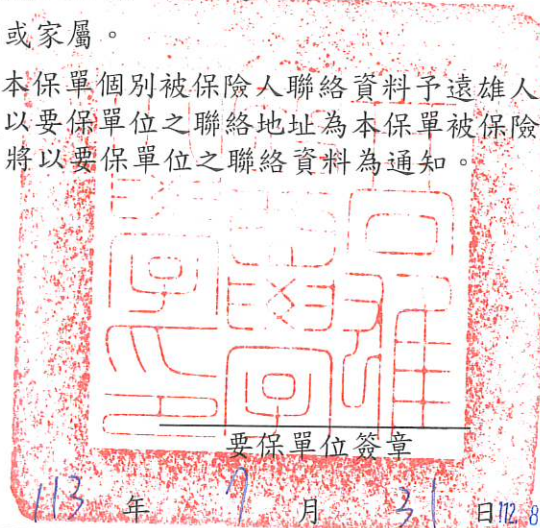 或家屬。
本保單個別被保險人聯絡資料予遠雄人
以要保單位之聯絡地址為本保單被保險
將以要保單位之聯絡資料為通知。
要保單位簽章
113 年 7 月 31 日 112.8